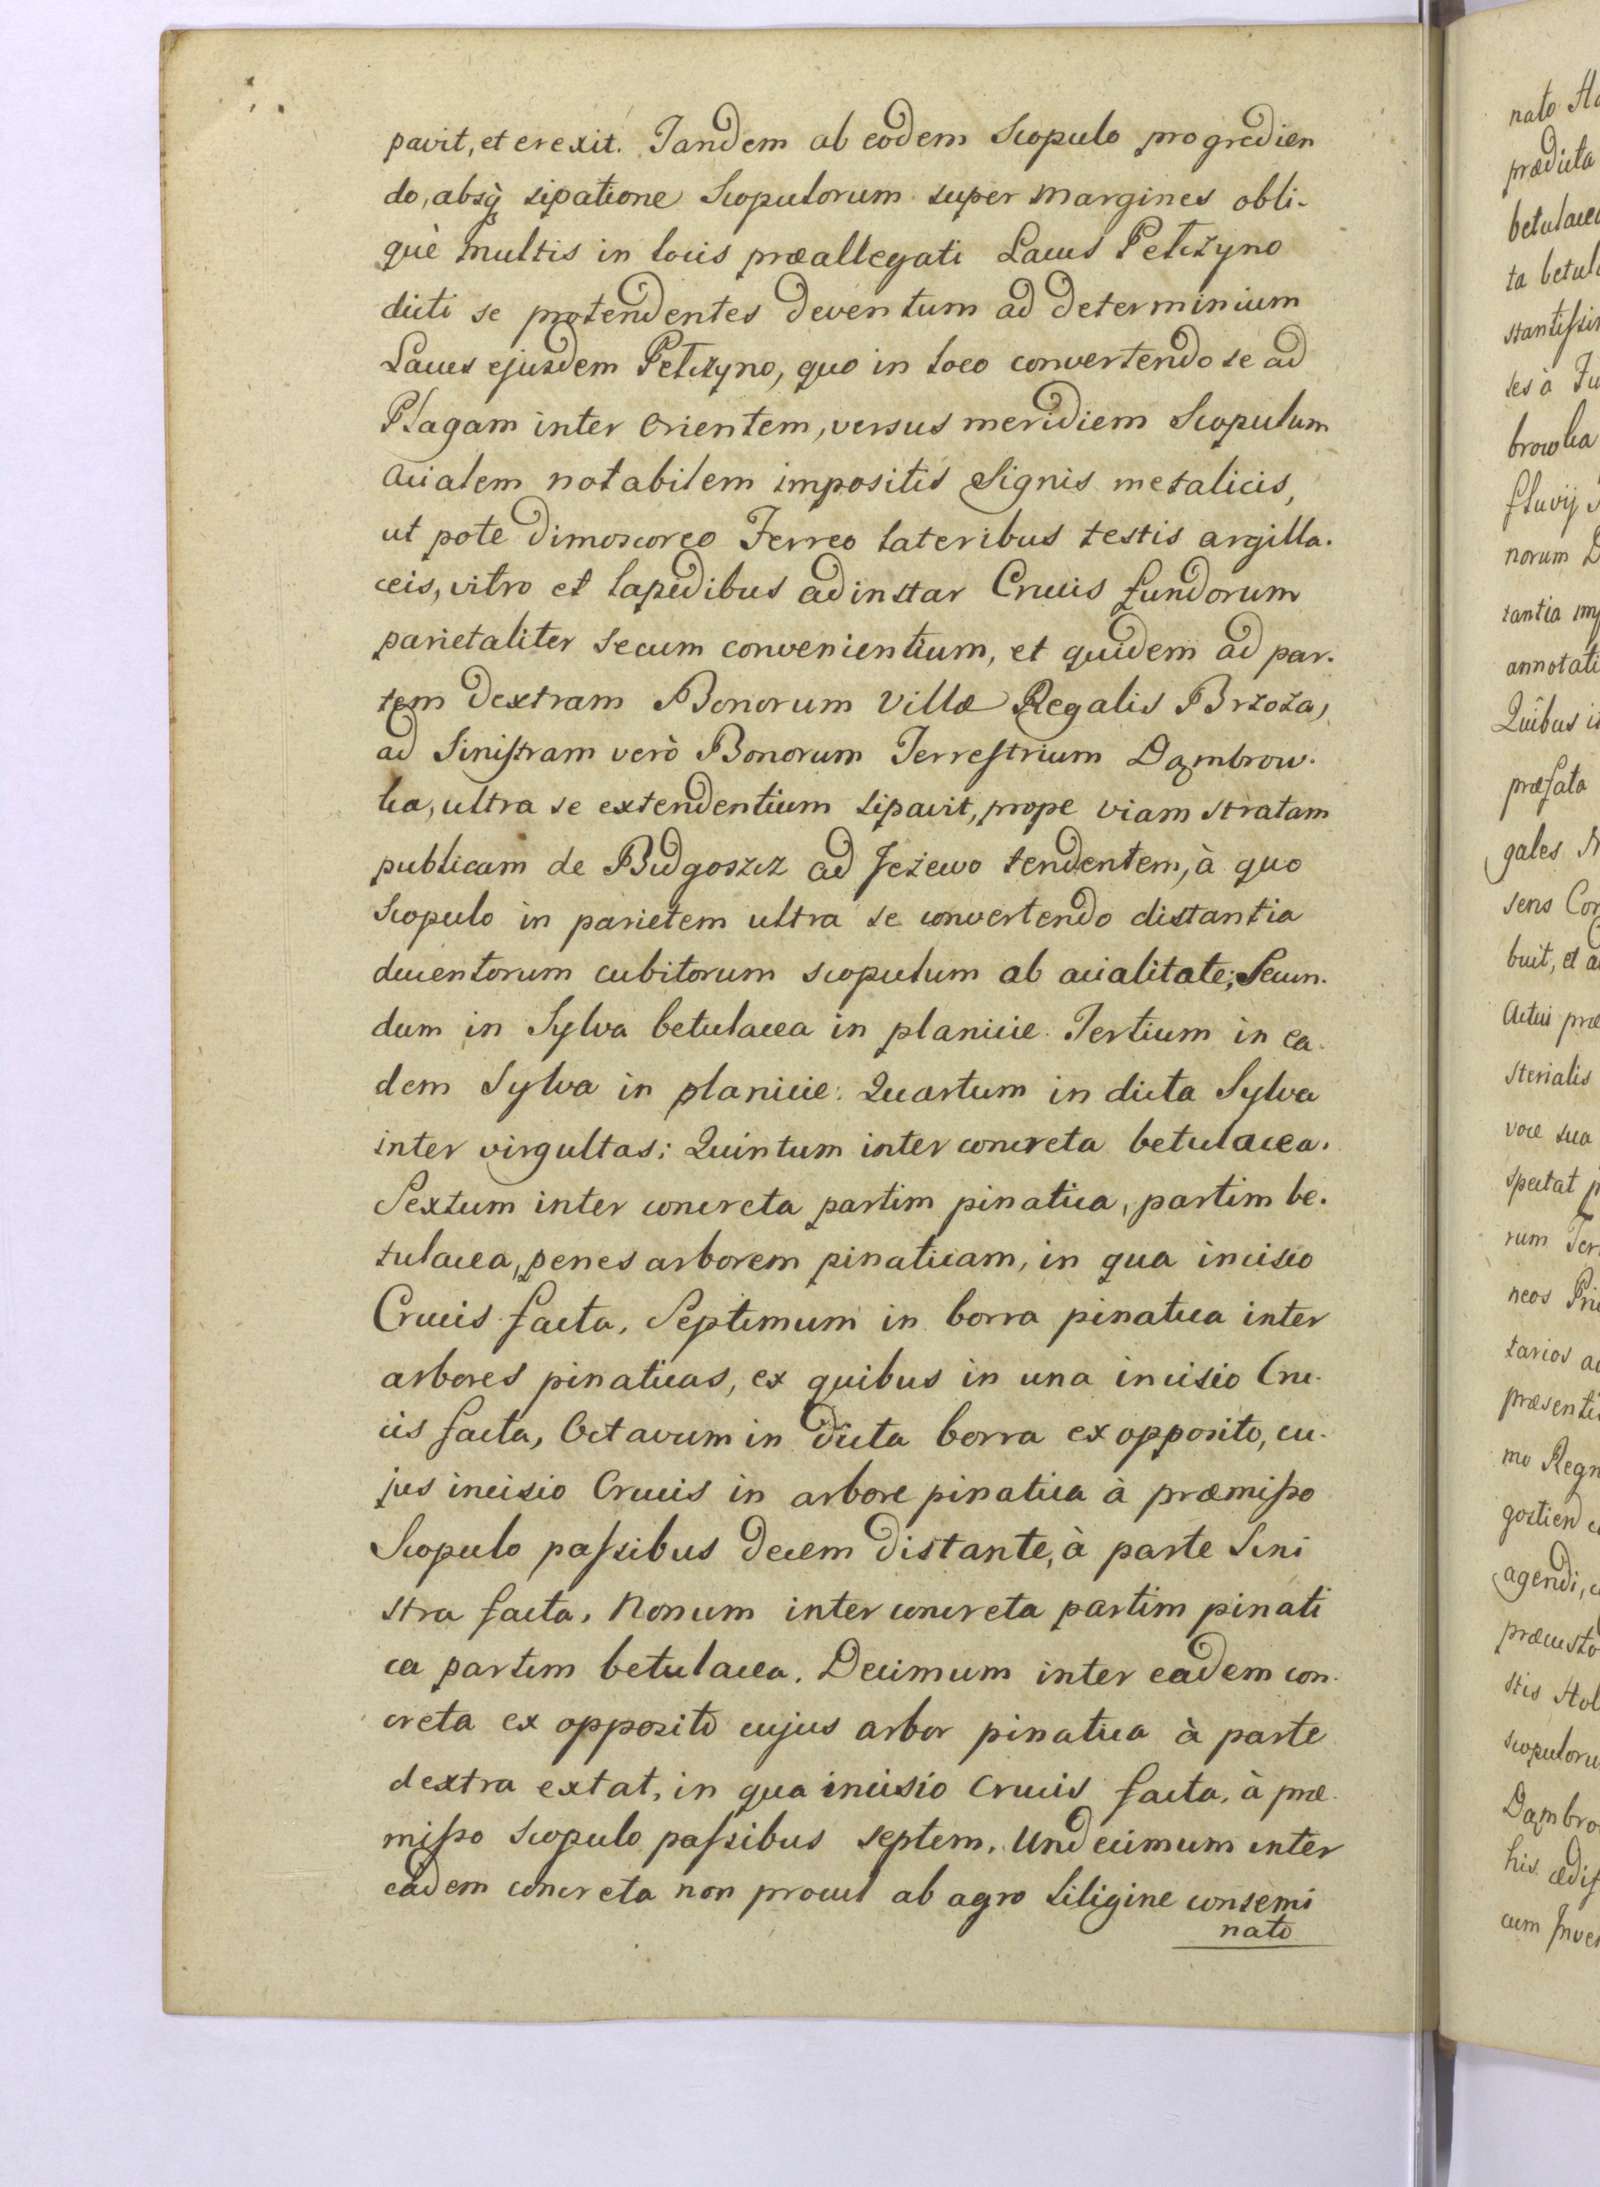 pavit, et erexit. Tandem ab eodem Scopulo progredien
do, absq̀ sipatione Scopulorum super margines obli-
què multis in locis præallegati Lacus Pełczyno
dicti se protendentes deventum ad determinium
Lacus ejusdem Pełczyno, quo in loco convertendo se ad
Plagam inter Orientem, versus meridiem Scopulum
Acialem notabilem impositis Signis metalicis,
ut pote dimoscoreo Ferreo lateribus testis argilla-
ceis, vitro et lapidibus ad instar Crucis fundorum
parietaliter secum convenientium, et quidem ad par-
tem dextram Bonorum Villæ Regalis Brzoza,
ad Sinistram verò Bonorum Terrestrium Dąmbrow-
ka, ultra se extendentium sipavit, prope viam stratam
publicam de Bidgoszcz ad Jeżewo tendentem, à quo
Scopulo in parietem ultra se convertendo distantia
ducentorum cubitorum scopulum ab acialitate; Secun-
dum in Sylva betulacea in planicie. Tertium in ea-
dem Sylva in planicie: Quartum in dicta Sylva
inter virgultas; Quintum inter concreta betulacea.
Sextum inter concreta partim pinatica, partim be-
tulacea, penes arborem pinaticam, in qua incisio
Crucis facta, Septimum in borra pinatica inter
arbores pinaticas, ex quibus in una incisio Cru-
cis facta, Octavum in dicta borra ex opposito, cu-
jus incisio Crucis in arbore pinatica à præmisso
Scopulo passibus decem distante, à parte Sini
stra facta, Nonum inter concreta partim pinati
ca partim betulacea. Decimum inter eadem con-
creta ex opposito cujus arbor pinatica à parte
dextra extat, in qua incisio Crucis facta, à præ-
misso scopulo passibus septem. Undecimum inter
eadem concreta non procul ab agro siligine consemi
nato
nato
prædicta
betulacea
ses à
browka
fluvij
norum
tantia
annotati
Quibus
præfata
gales
sens
buit, et
Actui
sterialis
voce sua
spectat
rum
neos
tarios
præsenti
mo Regn
agendi,
præcusto
stis
scopuloru
Dąmbro
his
cum